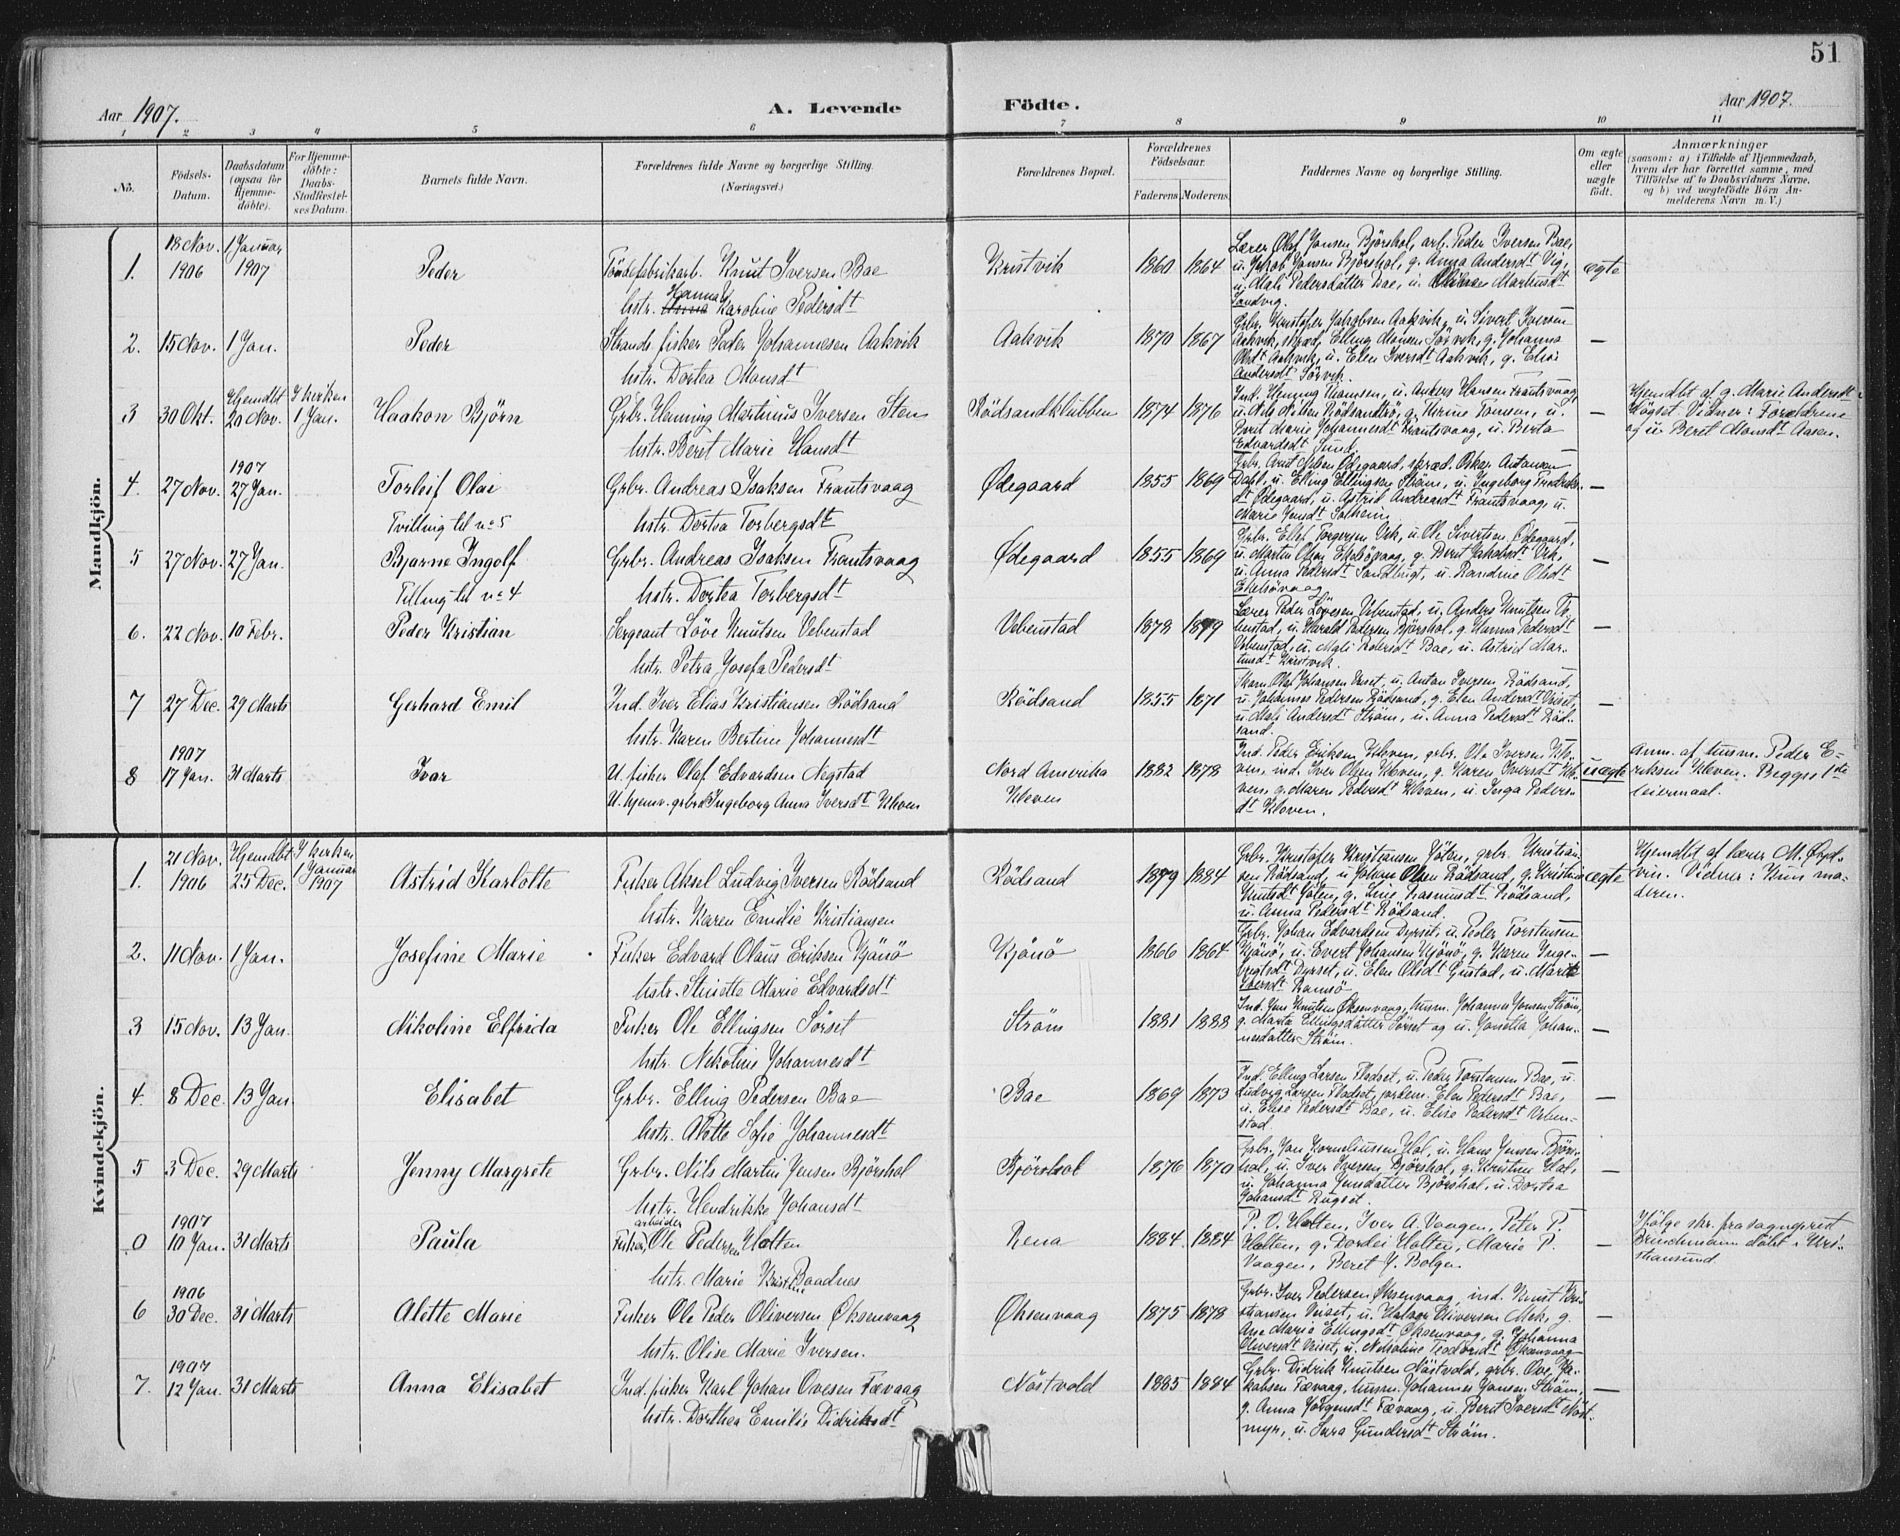 51
Aar 1907.
A. Levende
Födte.
Aar 1907.
1 2 3 4 5 6 7 8 9 10 11
No.
Födsels-
Datum.
Daabsdatum
(ogsaa for
Hjemme-
döbte).
For Hjemme-
döbte:
Daabs-
Stadfæstel-
ses Datum.
Barnets fulde Navn.
Forældrenes fulde Navne og borgerlige Stilling.
(Næringsvei.)
Forældrenes Bopæl.
Forældrenes
Födselsaar.
Faderens Moderens
Faddernes Navne og borgerlige Stilling.
Om ægte
eller
uægte
födt.
Anmærkninger
(saasom: a) i Tilfælde af Hjemmedaab,
hvem der har forrettet samme, med
Tilföielse af to Daabsvidners Navne,
og b) ved uægtefödte Börn An-
melderens Navn m. V.)
Mandkjön.
1. 18 Nov. 1906
1 Januar 1907
Peder
Töndefabrikarb. Knut Iversen Bae
hstr. Anna Hanna Karoline Pedersdt
Kristvik
1860 1864
Lærer Olaf Jonsen Björshol, arb. Peder Iversen Bae,
u. Jakob Jonsen Björshol, g. Anna Andersdt Vig,
u. Mali Pedersdatter Bae, u. Martinusdt
Sandvig.
ægte
2. 15 Nov. 1 Jan.
Peder
Strands. fisker Peder Johannesen Aakvik
hstr. Dortea Monsdt
Aakvik
1870 1867
Grbr. Kristofer Jakobsen Aakvik, u. Sivert Iversen
Aakvik, skræd. Elling Monsen Sörvik, g. Johanna
Olsdt Aakvik, u. Elen Iversdt Aakvik, g.
Andersdt Sörvik.
—
3 30 Okt.
Hjemdbt 20 Nov.
I kirken 1 Jan.
Haakon Björn
Grbr. Henning Martinus Iversen Sten
hstr. Beret Marie Hansdt
Rödsandklubben
1874 1876
Ind. Henning Tomsen, u. Anders Hansen Frantsvaag
u. Nils Nilsen Rödsandrö, g. Tomsen, u.
Berit Marie Johannesdt Frantsvaag, u. Berta
Edvardsdt Sund.
—
Hjemdbt af g. Marie Andersdt
Högset. Vidner: Forældrene
og u. Beret Monsdt Aasen.
4. 27 Nov.
1907
27 Jan.
Torleif Olai
Tvilling til no 5
Grbr. Andreas Isaksen Frantsvaag
hstr. Dortea Torbergsdt
Ödegaard
1855 1869
Grbr. Nilsen Ödegaard, skræd. Oskar Antonsen
Dahl, u. Elling Ellingsen Ström, u. Ingeborg Fredriks-
dt Ödegaard, u. Astrid Andreasdt Frantsvaag, u.
Marie Jensdt Solheim
—
5 27 Nov. 27 Jan.
Bjarne Ingolf
Tilling til no 4
Grbr. Andreas Isaksen Frantsvaag
hstr. Dortea Torbergsdt
Ödegaard
1855 1869
Grbr. Ellef Torgersen Vik, u. Ole Sivertsen Ödegaard,
u. Martin Olsen Ekelsövaag, g. Berit Jakobsdt Vik,
u. Anna Pedersdt Sandbugt, u. Randine Olsdt
Ekelsövaag
—
6. 22 Nov. 10 Febr.
Peder Kristian
Sergeant Löve Knutsen Vebenstad
hstr. Petra Josefa Pedersdt
Vebenstad
1878 1879
Lærer Peder Lövesen Vebenstad, u. Anders Knutsen
u. Harald Pedersen Björshol, g. Hanna Pedersdt
Vebenstad, u. Mali Pedersdt Bae, u. Astrid Mar-
tinusdt Kristvik.
—
7 27 Dec. 29 Marts
Gerhard Emil
Ind. Iver Elias Kristiansen Rödsand
hstr. Karen Bertine Johannesdt
Rödsand
1855 1871
Olaf Johansen Viset, u. Anton Iversen Rödsand,
u. Johannes Pedersen Rödsand, g. Elen Andersdt Viset,
u. Mali Andersdt Ström, u. Anna Pedersdt Röd-
sand.
—
8
1907
17 Jan. 31 Marts
Ivar
U. fisker Olaf Edvardsen Negstad
U. hjemv. grbrd Ingeborg Anna Iversdt Kleven
Nord Amerika
Kleven
1882 1878
Ind. Peder Eriksen Kleven, grbr. Ole Iversen Kle-
ven, ind. Iver Olsen Kleven, g. Karen Iversdt Kle-
ven, g. Maren Pedersdt Kleven, u. Inga Peders-
dt Kleven.
uægte
Anm. af husm. Peder E-
riksen Kleven. Begges 1ste
leiermaal.
Kvindekjön.
1. 21 Nov. 1906
Hjemdbt 25 Dec.
I kirken 1 Januar 1907
Astrid Karlotte
Fisker Aksel Ludvig Iversen Rödsand
hstr. Karen Emilie Kristiansen
Rödsand
1879 1884
Grbr. Kristofer Kristiansen Jöten, grbr. Kristian-
sen Rödsand, u. Johan Olsen Rödsand, g. Kristine
Knutsdt Jöten, g. Line Rasmusdt Rödsand,
u. Anna Pedersdt Rödsand.
ægte
Hjemdbt af lærer M.
Vidner: Kun mo-
deren.
2. 11 Nov. 1 Jan.
Josefine Marie
Fisker Edvard Olaus Eriksen Kjönö
hstr. Marie Edvardsdt
Kjönö
1866 1864
Grbr. Johan Edvardsen Dyrset, u. Peder Torstensen
Kjönö, u. Evert Johansen Kjönö, g. Karen Inge-
brigtsdt Dyrset, u. Elen Olsdt Gustad, u. Marit
Iversdt Ramsö
—
3 15 Nov. 13 Jan.
Nikoline Elfrida
Fisker Ole Ellingsen Sörset
hstr. Nekoline Johannesdt
Ström
1881 1888
Ind. Jens Knutsen Öksenvaag, husm. Johannes Jonsen Ström,
g. Marta Ellingsdatter Sörset og u. Jonetta Johan-
nesdatter Ström.
—
4. 8 Dec. 13 Jan.
Elisabet
Grbr. Elling Pedersen Bae
hstr. Alette Sofie Johannesdt
Bae
1869 1873
Ind. Elling Larsen Fladset, u. Peder Torstensen Bae, u.
Ludvig Larsen Fladset, jordem. Elen Pedersdt Bae,
u. Elise Pedersdt Bae, u. Elise Pedersdt Veben-
stad.
—
5 3 Dec. 29 Marts
Jenny Margrete
Grbr. Nils Martin Jensen Björshol
hstr. Hendrikke Johansdt
Björshol
1876 1870
Grbr. Jan Korneliussen Hol, u. Hans Jensen Björs-
hol, u. Iver Iversen Björshol, g. Kristine Hol,
u. Johanna Jensdatter Björshol, u. Dortea
Johansdt Rugset.
—
0
1907
10 Jan. 31 Marts
Paula
arbeider
Fisker Ole Pedersen Holten
hstr. Marie Kristine Baadnes
Rena
1884. 1884
P. O. Holten, Iver A. Vaagen, Peter P.
Holten, g. Dordei Holten, Marie P.
Vaagen, Beret J. Bolgen
—
Ifölge skr. fra sogneprest
Brinchmann döbt i Kri-
stiansund.
6
1906
30 Dec. 31 Marts
Alette Marie
Fisker Ole Peder Oliversen Öksenvaag
hstr. Olise Marie Iversen.
Öksenvaag
1875 1878
Grbr. Iver Pedersen Öksenvaag, ind. Knut Kri-
stiansen Viset, u. Halvor Oliversen Mek, g.
Ane Marie Ellingsdt Öksenvaag, g. Johanna
Oliversdt Viset, u. Nikoline Teodorsdt Öksenvaag
—
7.
1907
12 Jan. 31 Marts
Anna Elisabet
Ind. fisker Karl Johan Ovesen Fævaag
hstr. Dorthea Emilie Didriksdt
Nöstvold
1885 1884
Grbr. Didrik Knutsen Nöstvold, grbr. Ove Ja-
kobsen Fævaag, husm. Johannes Jonsen Ström,
g. Anna Jörgensdt Fævaag, u. Berit Iversdt Nöst-
myr, u. Sara Gundersdt Ström.
—